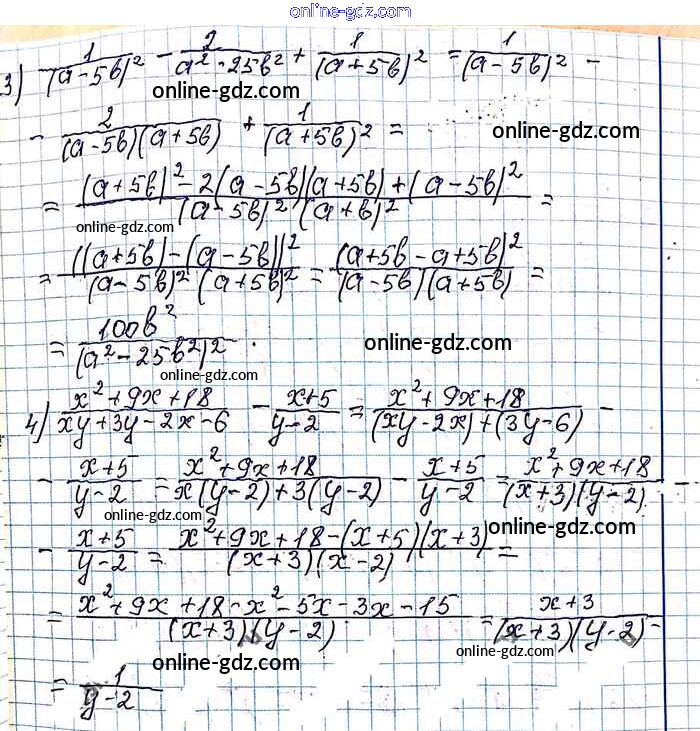 online-gdz.com
3) 1/(a-5b)² - 2/(a²-25b²) + 1/(a+5b)² = 1/(a-5b)² -
online-gdz.com
- 2/((a-5b)(a+5b)) + 1/(a+5b)² =
online-gdz.com
= ((a+5b)² - 2(a-5b)(a+5b) + (a-5b)²)/((a-5b)²(a+b)²) =
online-gdz.com
= ((a+5b)-(a-5b))²/((a-5b)²(a+5b)²) = (a+5b-a+5b)²/((a-5b)(a+5b)) =
= 100b²/(a²-25b²)².
online-gdz.com
online-gdz.com
4) (x²+9x+18)/(xy+3y-2x-6) - (x+5)/(y-2) = (x²+9x+18)/((xy-2x)+(3y-6)) -
- (x+5)/(y-2) = (x²+9x+18)/(x(y-2)+3(y-2)) - (x+5)/(y-2) = (x²+9x+18)/((x+3)(y-2)) -
online-gdz.com
online-gdz.com
- (x+5)/(y-2) = (x²+9x+18-(x+5)(x+3))/((x+3)(x-2)) =
= (x²+9x+18-x²-5x-3x-15)/((x+3)(y-2)) = (x+3)/((x+3)(y-2)) =
online-gdz.com
online-gdz.com
= 1/(y-2)